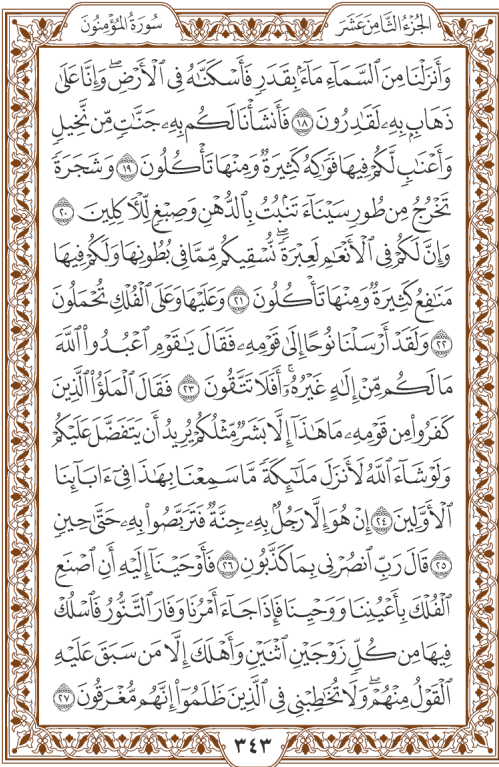 الجزء الثامن عشر
سورة المؤمنون
وَأَنزَلْنَا مِنَ ٱلسَّمَآءِ مَآءًۢ بِقَدَرٍ فَأَسْكَنَّـٰهُ فِى ٱلْأَرْضِ ۖ وَإِنَّا عَلَىٰ
ذَهَابٍۭ بِهِۦ لَقَـٰدِرُونَ ١٨ فَأَنشَأْنَا لَكُم بِهِۦ جَنَّـٰتٍ مِّن نَّخِيلٍ
وَأَعْنَـٰبٍ لَّكُمْ فِيهَا فَوَٰكِهُ كَثِيرَةٌ وَمِنْهَا تَأْكُلُونَ ١٩ وَشَجَرَةً
تَخْرُجُ مِن طُورِ سَيْنَآءَ تَنۢبُتُ بِٱلدُّهْنِ وَصِبْغٍ لِّلْـَٔاكِلِينَ ٢٠
وَإِنَّ لَكُمْ فِى ٱلْأَنْعَـٰمِ لَعِبْرَةً ۖ نُّسْقِيكُم مِّمَّا فِى بُطُونِهَا وَلَكُمْ فِيهَا
مَنَـٰفِعُ كَثِيرَةٌ وَمِنْهَا تَأْكُلُونَ ٢١ وَعَلَيْهَا وَعَلَى ٱلْفُلْكِ تُحْمَلُونَ
٢٢ وَلَقَدْ أَرْسَلْنَا نُوحًا إِلَىٰ قَوْمِهِۦ فَقَالَ يَـٰقَوْمِ ٱعْبُدُوا۟ ٱللَّهَ
مَا لَكُم مِّنْ إِلَـٰهٍ غَيْرُهُۥٓ ۚ أَفَلَا تَتَّقُونَ ٢٣ فَقَالَ ٱلْمَلَؤُا۟ ٱلَّذِينَ
كَفَرُوا۟ مِن قَوْمِهِۦ مَا هَـٰذَآ إِلَّا بَشَرٌ مِّثْلُكُمْ يُرِيدُ أَن يَتَفَضَّلَ عَلَيْكُمْ
وَلَوْ شَآءَ ٱللَّهُ لَأَنزَلَ مَلَـٰٓئِكَةً مَّا سَمِعْنَا بِهَـٰذَا فِىٓ ءَابَآئِنَا
ٱلْأَوَّلِينَ ٢٤ إِنْ هُوَ إِلَّا رَجُلٌۢ بِهِۦ جِنَّةٌ فَتَرَبَّصُوا۟ بِهِۦ حَتَّىٰ حِينٍ
٢٥ قَالَ رَبِّ ٱنصُرْنِى بِمَا كَذَّبُونِ ٢٦ فَأَوْحَيْنَآ إِلَيْهِ أَنِ ٱصْنَعِ
ٱلْفُلْكَ بِأَعْيُنِنَا وَوَحْيِنَا فَإِذَا جَآءَ أَمْرُنَا وَفَارَ ٱلتَّنُّورُ ۙ فَٱسْلُكْ
فِيهَا مِن كُلٍّ زَوْجَيْنِ ٱثْنَيْنِ وَأَهْلَكَ إِلَّا مَن سَبَقَ عَلَيْهِ
ٱلْقَوْلُ مِنْهُمْ ۖ وَلَا تُخَـٰطِبْنِى فِى ٱلَّذِينَ ظَلَمُوٓا۟ ۖ إِنَّهُم مُّغْرَقُونَ ٢٧
٣٤٣